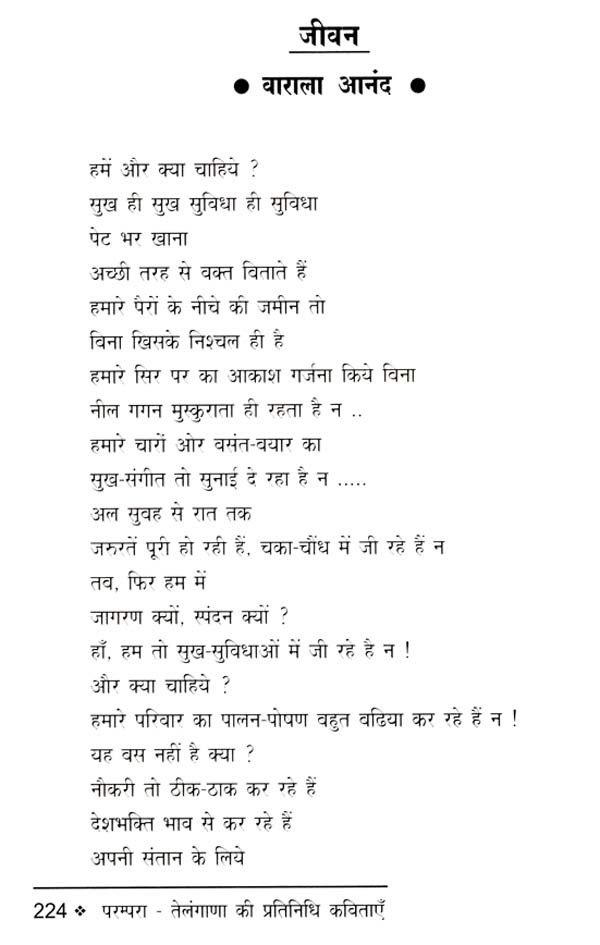 जीवन
● वाराला आनंद ●
हमें और क्या चाहिये ?
सुख ही सुख सुविधा ही सुविधा
पेट भर खाना
अच्छी तरह से वक्त विताते हैं
हमारे पैरों के नीचे की जमीन तो
विना खिसके निश्चल ही है
हमारे सिर पर का आकाश गर्जना किये विना
नील गगन मुस्कुराता ही रहता है न ..
हमारे चारों ओर वसंत-वयार का
सुख-संगीत तो सुनाई दे रहा है न .....
अल सुवह से रात तक
जरुरतें पूरी हो रही हैं, चका-चौंध में जी रहे हैं न
तव, फिर हम में
जागरण क्यों, स्पंदन क्यों ?
हाँ, हम तो सुख-सुविधाओं में जी रहे है न !
और क्या चाहिये ?
हमारे परिवार का पालन-पोषण वहुत वढिया कर रहे हैं न !
यह वस नहीं है क्या ?
नौकरी तो ठीक-ठाक कर रहे हैं
देशभक्ति भाव से कर रहे हैं
अपनी संतान के लिये
224 ❖ परम्परा - तेलंगाणा की प्रतिनिधि कविताएँ